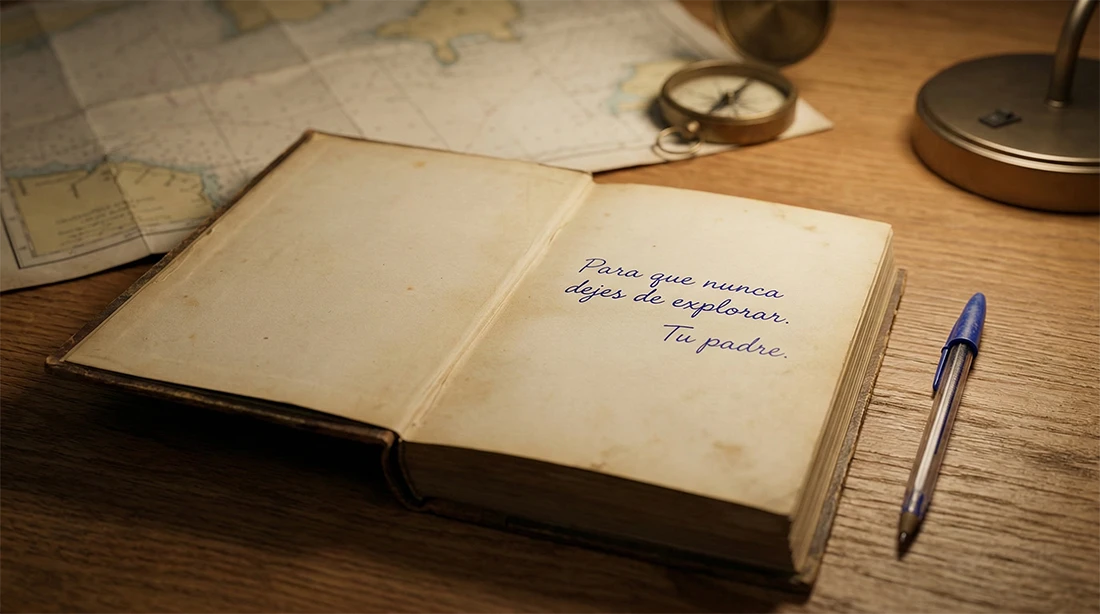 Para que nunca
dejes de explorar.
Tu padre.